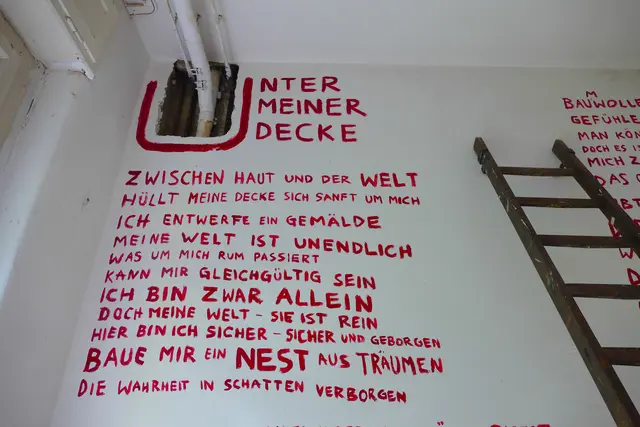 UNTER
MEINER
DECKE
ZWISCHEN HAUT UND DER WELT
HÜLLT MEINE DECKE SICH SANFT UM MICH
ICH ENTWERFE EIN GEMÄLDE
MEINE WELT IST UNENDLICH
WAS UM MICH RUM PASSIERT
KANN MIR GLEICHGÜLTIG SEIN
ICH BIN ZWAR ALLEIN
DOCH MEINE WELT - SIE IST REIN
HIER BIN ICH SICHER - SICHER UND GEBORGEN
BAUE MIR EIN NEST AUS TRÄUMEN
DIE WAHRHEIT IN SCHATTEN VERBORGEN
GEFÜHLE
MAN KÖN
DOCH ES IS
MICH Z